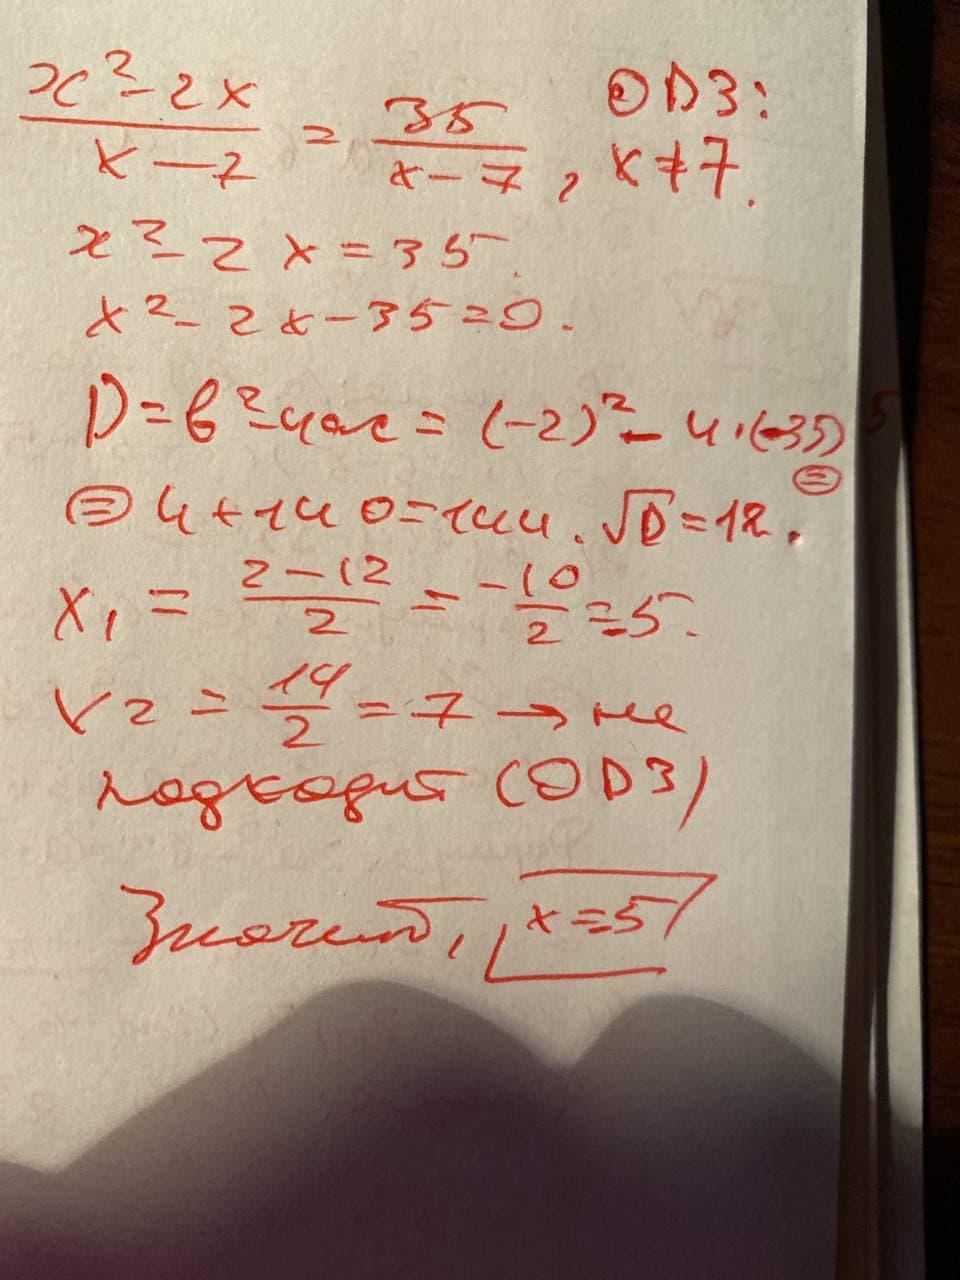 x² - 2x / x - 7 = 35 / x - 7 , ОДЗ: x ≠ 7.
x² - 2x = 35.
x² - 2x - 35 = 0.
D = b² - 4ac = (-2)² - 4·(-35) =
= 4 + 140 = 144. √D = 12.
x₁ = 2 - 12 / 2 = -10 / 2 = -5.
x₂ = 14 / 2 = 7 → не
подходит (ОДЗ)
Значит, x = 5